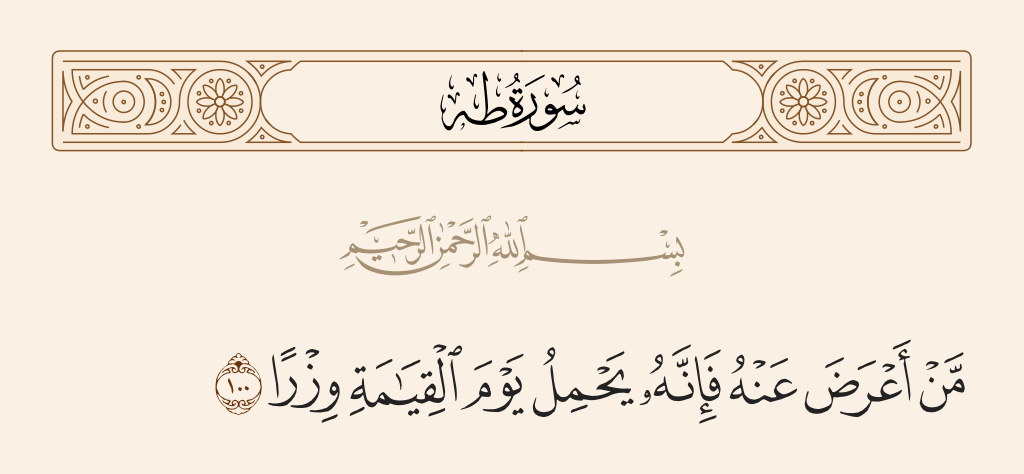 سُورَةُ طه
بِسْمِ ٱللَّهِ ٱلرَّحْمَٰنِ ٱلرَّحِيمِ
مَّنْ أَعْرَضَ عَنْهُ فَإِنَّهُۥ يَحْمِلُ يَوْمَ ٱلْقِيَـٰمَةِ وِزْرًا ١٠٠